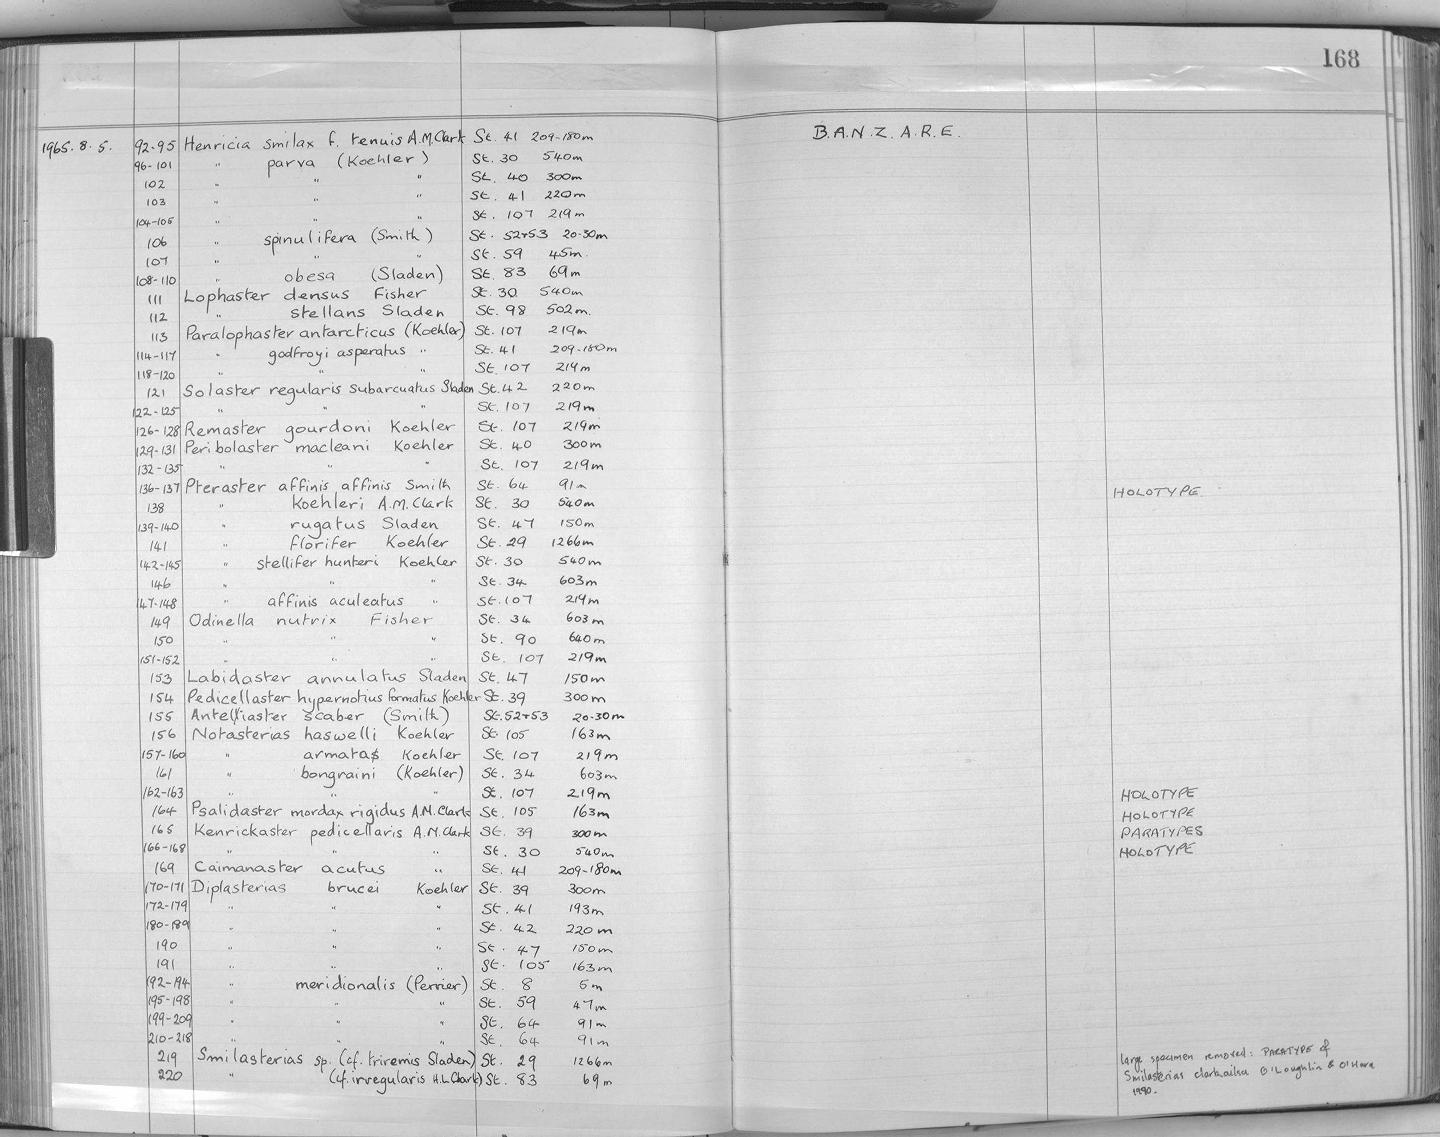 168
B.A.N.Z.A.R.E.
1965. 8. 5. 92-95 Henricia smilax f. tenuis A.M.Clark St. 41 209-180m
96-101 " parva (Koehler) St. 30 540m
102 " " " St. 40 300m
103 " " " St. 41 220m
104-105 " " " St. 107 219m
106 " spinulifera (Smith) St. 52+53 20-30m
107 " " " St. 59 45m.
108-110 " obesa (Sladen) St. 83 69m
111 Lophaster densus Fisher St. 30 540m
112 " stellans Sladen St. 98 502m.
113 Paralophaster antarcticus (Koehler) St. 107 219m
114-117 " godfroyi asperatus " St. 41 209-180m
118-120 " " " St. 107 219m
121 Solaster regularis subarcuatus Sladen St. 42 220m
122-125 " " " St. 107 219m
126-128 Remaster gourdoni Koehler St. 107 219m
129-131 Peribolaster macleani Koehler St. 40 300m
132-135 " " " St. 107 219m
136-137 Pteraster affinis affinis Smith St. 64 91m
138 " koehleri A.M.Clark St. 30 540m HOLOTYPE.
139-140 " rugatus Sladen St. 47 150m
141 " florifer Koehler St. 29 1266m
142-145 " stellifer hunteri Koehler St. 30 540m
146 " " " St. 34 603m
147-148 " affinis aculeatus " St. 107 219m
149 Odinella nutrix Fisher St. 34 603m
150 " " " St. 90 640m
151-152 " " " St. 107 219m
153 Labidaster annulatus Sladen St. 47 150m
154 Pedicellaster hypernotius formatus Koehler St. 39 300m
155 Anteliaster scaber (Smith) St. 52+53 20-30m
156 Notasterias haswelli Koehler St. 105 163m
157-160 " armatas Koehler St. 107 219m
161 " bongraini (Koehler) St. 34 603m
162-163 " " " St. 107 219m
164 Psalidaster mordax rigidus A.M.Clark St. 105 163m HOLOTYPE
165 Kenrickaster pedicellaris A.M.Clark St. 39 300m HOLOTYPE
166-168 " " " St. 30 540m PARATYPES
169 Caimanaster acutus " St. 41 209-180m HOLOTYPE
170-171 Diplasterias brucei Koehler St. 39 300m
172-179 " " " St. 41 193m
180-189 " " " St. 42 220m
190 " " " St. 47 150m
191 " " " St. 105 163m
192-194 " meridionalis (Perrier) St. 8 5m
195-198 " " " St. 59 47m
199-209 " " " St. 64 91m
210-218 " " " St. 64 91m
219 Smilasterias sp. (cf. triremis Sladen) St. 29 1266m
220 " (cf. irregularis H.L.Clark) St. 83 69m
large specimen removed: PARATYPE of
Smilasterias clarkailsa O'Loughlin & O'Hara
1990.